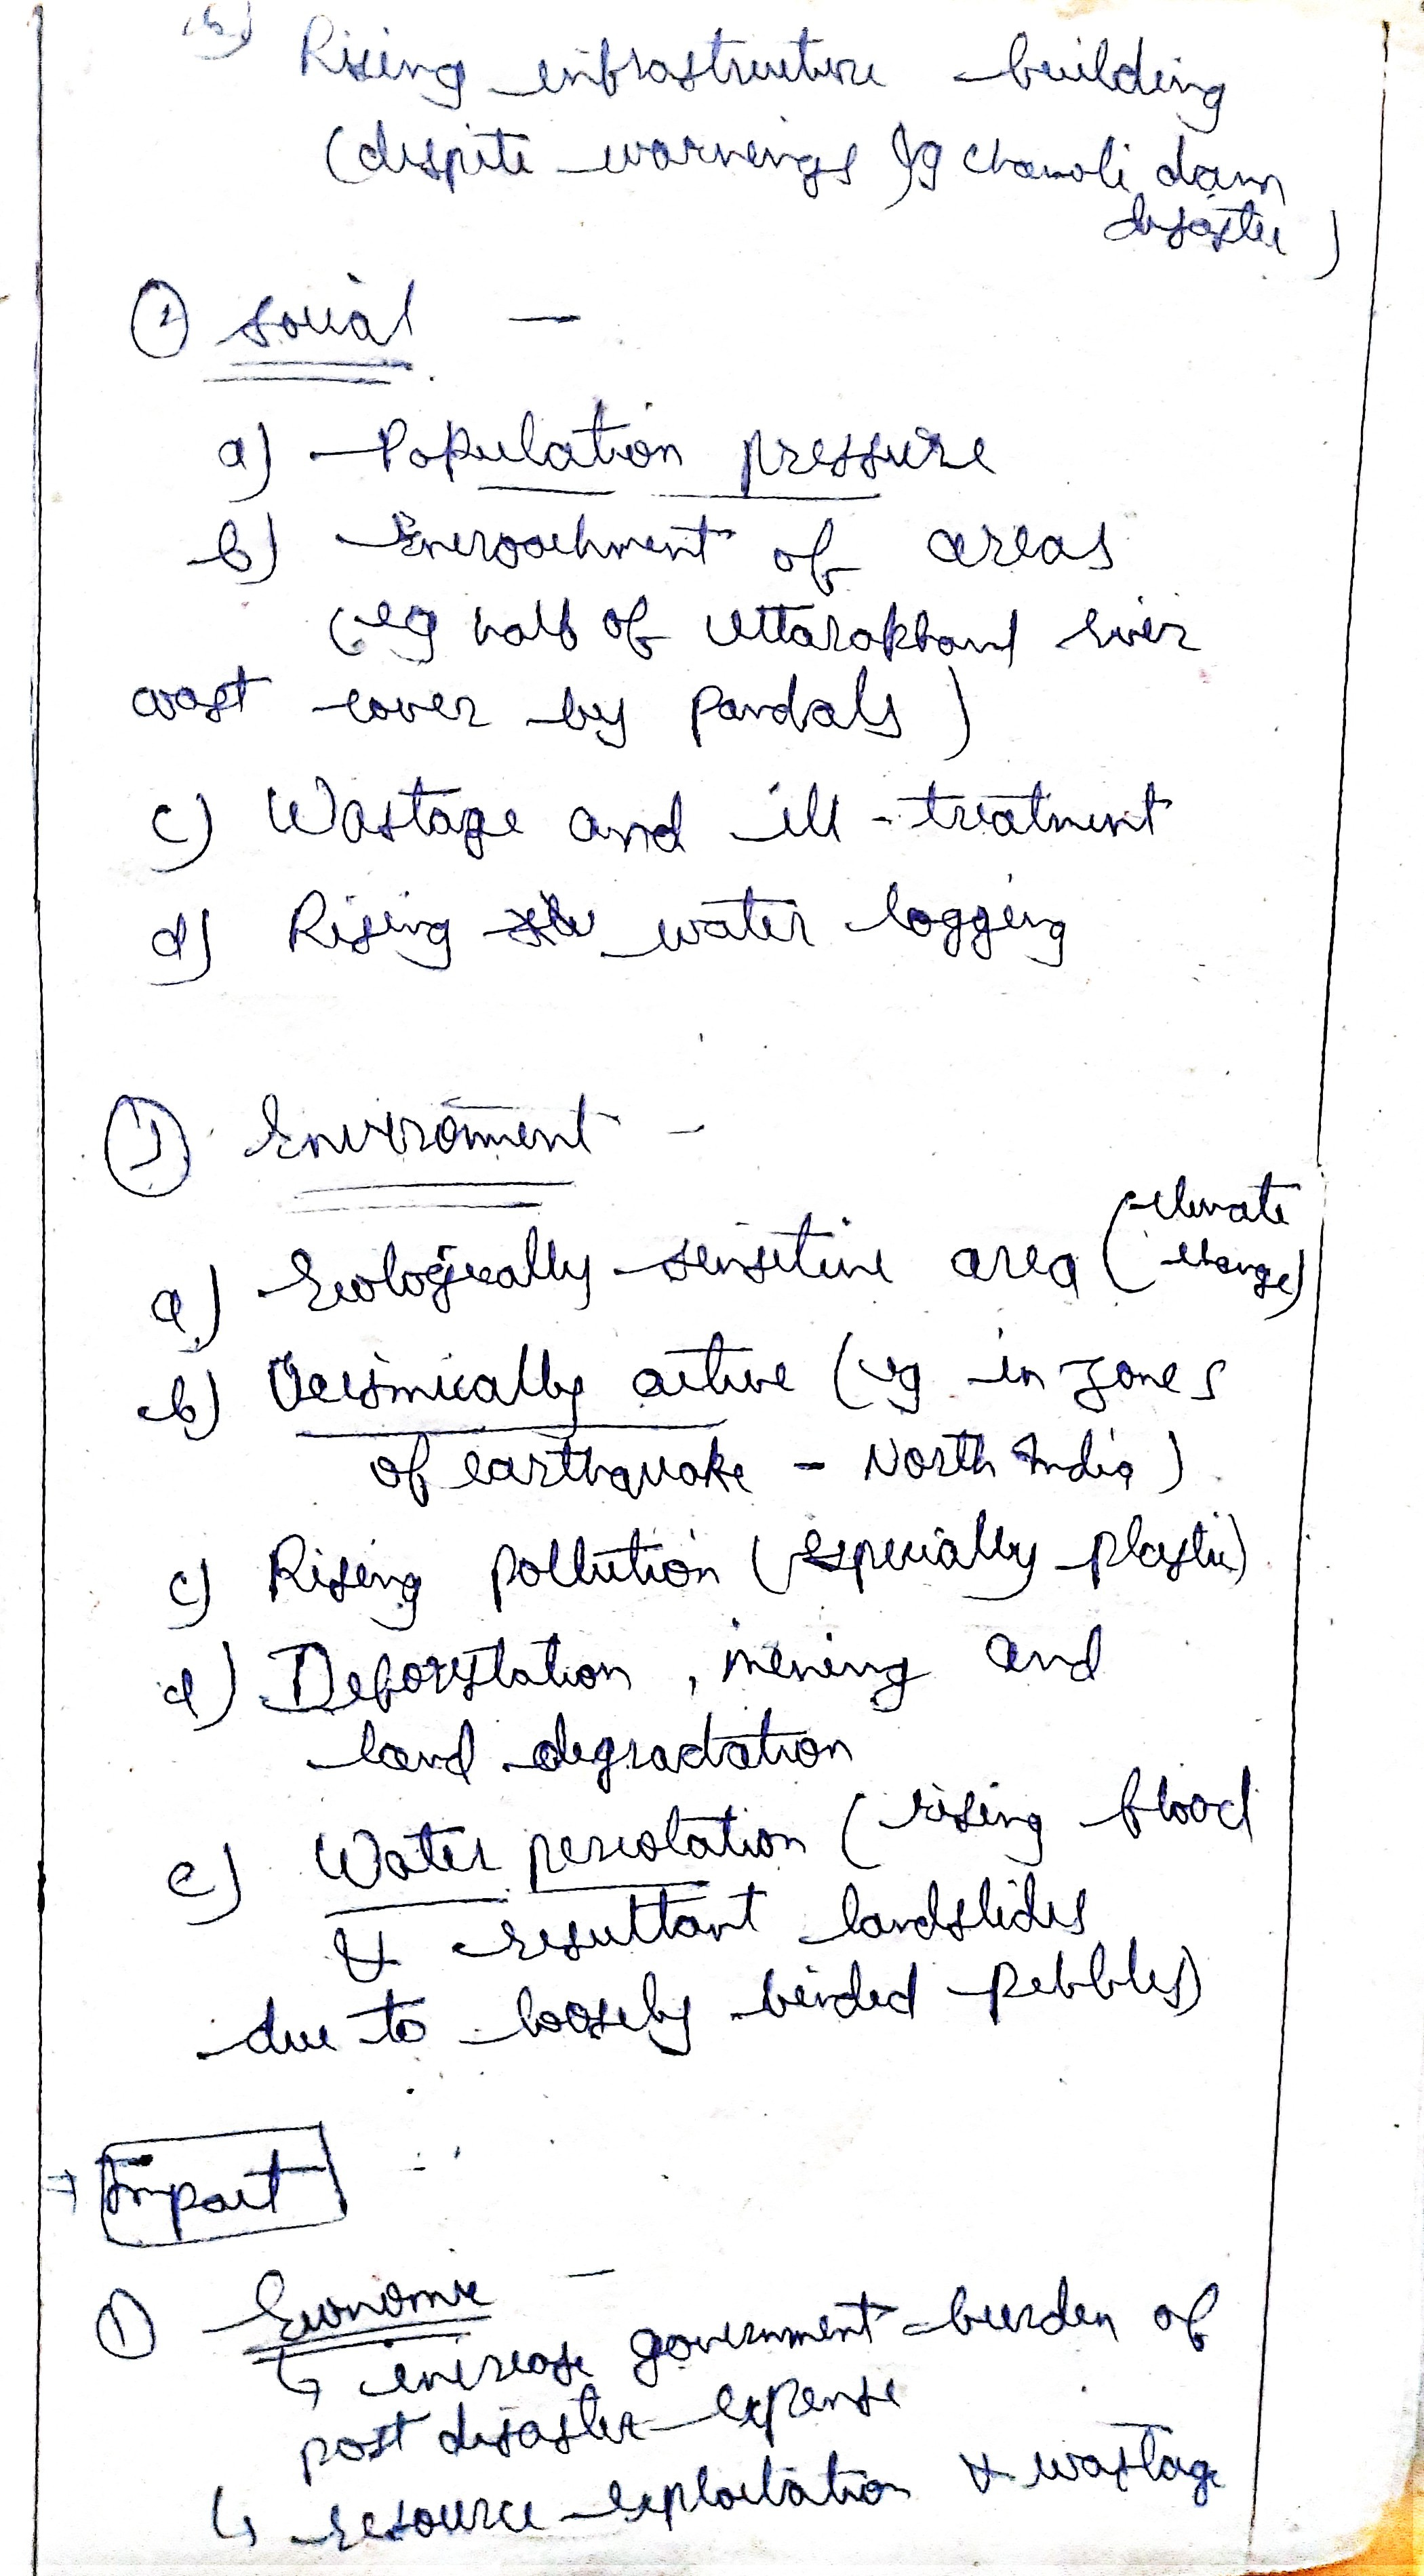 b) Rising infrastructure building
(despite warnings eg chamoli dam
disaster)
② Social —
a) Population pressure
b) Encroachment of areas
(eg half of Uttarakhand river
coast cover by pandals)
c) Wastage and ill-treatment
d) Rising water logging
③ Enviroment —
a) Ecologically sensitive area (climate
change)
b) Seismically active (eg in zones
of earthquake - North India)
c) Rising pollution (especially plastic)
d) Deforestation, mining and
land degradation
e) Water percolation (rising flood
& resultant landslides
due to loosely binded pebbles)
→ Impact
① Economic —
↳ increase government burden of
post disaster expense
↳ resource exploitation & wastage